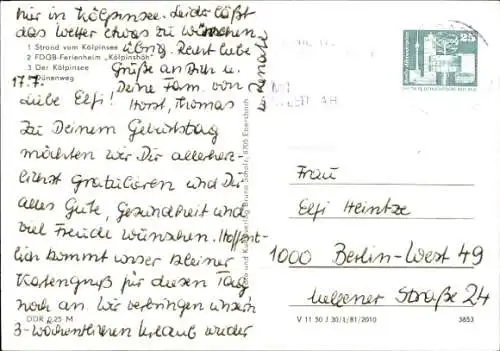 hier in Kölpinsee. Leider läßt
das Wetter etwas zu wünschen
übrig. Recht liebe
Grüße an Dich u.
Deine Fam. von
Horst, Thomas
u. Renate
1 Strand vom Kölpinsee
2 FDGB-Ferienheim „Kölpinshöh"
3 Der Kölpinsee
Dünenweg
17.7.
Liebe Elfi!
Zu Deinem Geburtstag
möchten wir Dir allerher-
lichst gratulieren und Dir
alles Gute, Gesundheit und
viel Freude wünschen. Hoffent-
lich kommt unser kleiner
Kartengruß für diesen Tag
noch an. Wir verbringen unseren
3-wöchentlichen Urlaub wieder
DDR 0,25 M
Bruno Scholz, 8705 Ebersbach
25
Frau
Elfi Heintze
1000 Berlin-West 49
Straße 24
V 11 50 J 30/1/81/2010
3853